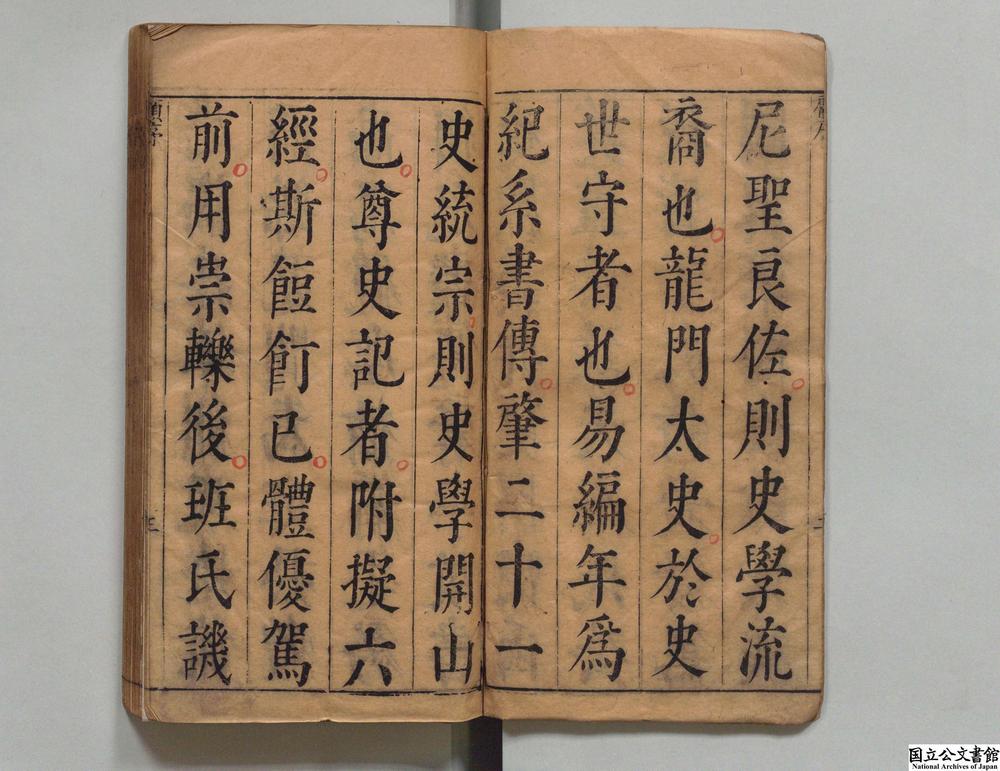 尼聖良佐則史學流
裔也龍門太史於史
世守者也易編年爲
紀系書傳肇二十一
史統宗則史學開山
也尊史記者附擬六
經斯餖飣已體優駕
前用崇轢後班氏譏
國立公文書館
National Archives of Japan